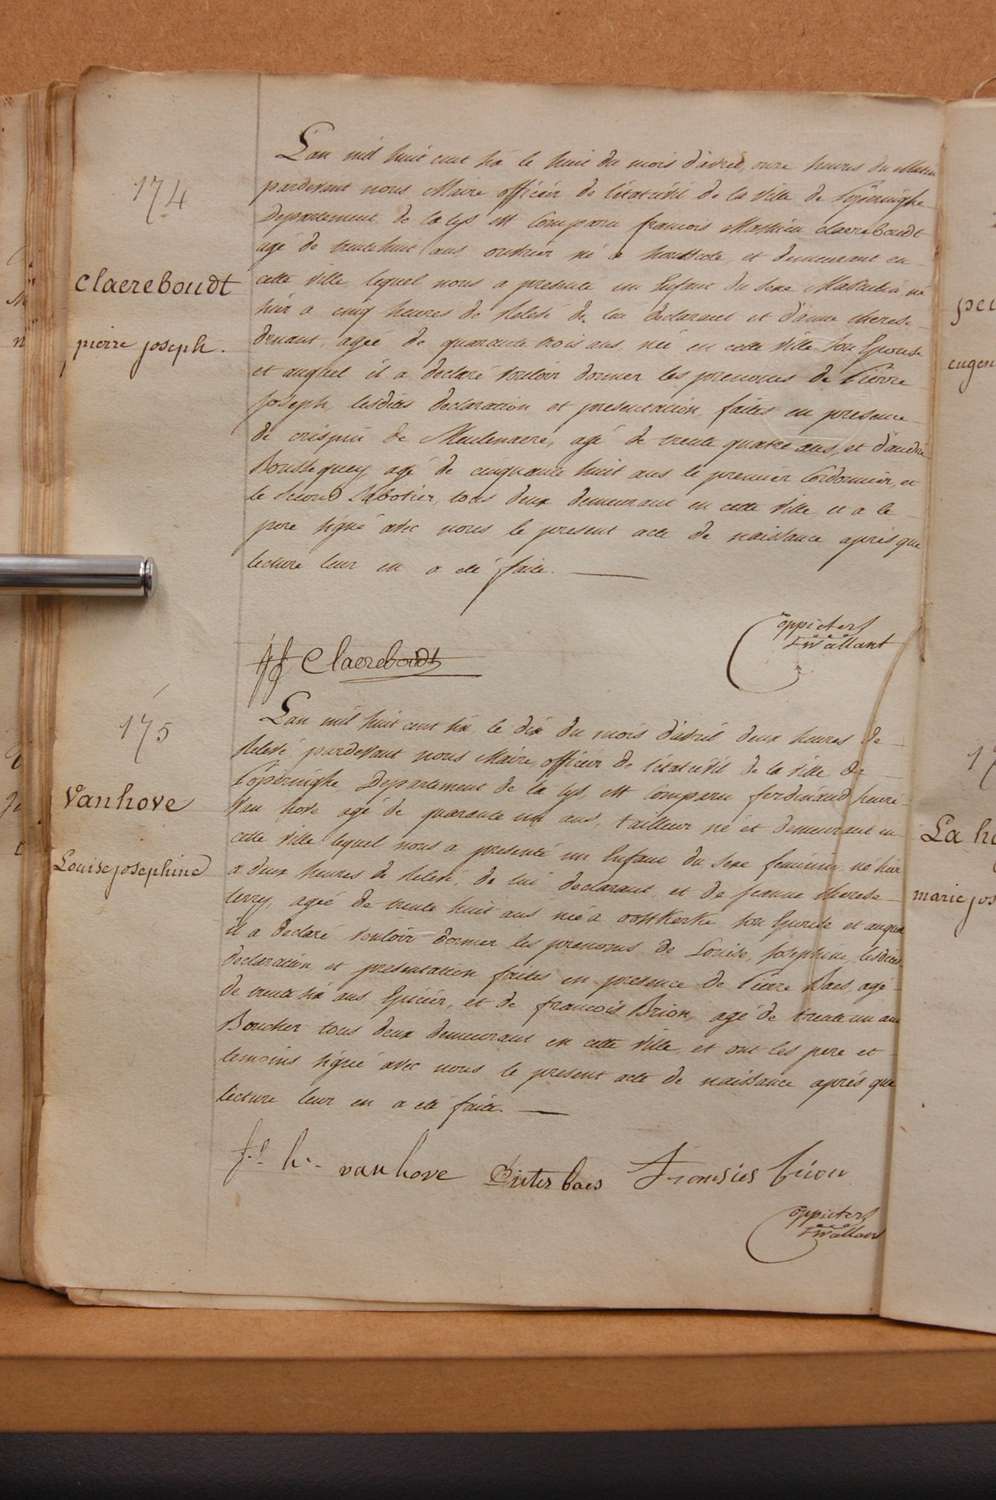 174
Claereboudt
pierre joseph.
L'an mil huit cent six le huit du mois d'avril, onze heures du Matin
pardevant nous Maire officier de l'état civil de la ville de Popèringhe
Departement de la Lys est Comparu francois Mathieu claereboudt
agé de trente huit ans ouvrier né a et demeurant en
cette ville, lequel nous a presenté un Enfant du sexe Masculin né
hier a cinq heures de Relevé de lui declarant et d'anne therese
agée de quarante trois ans, née en cette ville son Epouse
et auquel il a declaré vouloir donner les prenoms de Pierre
Joseph, lesdites declaration et presentation faites en presence
de crispin de Meulenaere, agé de trente quatre ans, et d'andré
Bousequey agé de cinquante huit ans le premier Cordonnier, et
le second Sabotier, tous deux demeurant en cette ville et a le
pere signé avec nous le present acte de naissance après que
lecture leur en a eté faite.
Claereboudt
175
Vanhove
Louise josephine
L'an mil huit cent six, le dix du mois d'avril deux heures de
Relevé pardevant nous Maire officier de l'état civil de la ville de
Popèringhe Departement de la Lys est Comparu ferdinand henri
Van hove agé de quarante un ans, tailleur né et demeurant en
cette ville lequel nous a presenté un Enfant du sexe feminin, né hier
a deux heures de Relevé, de lui declarant et de jeanne therese
agée de trente huit ans née a oostkerke son Epouse et auquel
il a declaré vouloir donner les prenoms de Louise Josephine, lesdites
declaration et presentation faites en presence de Pierre Baes agé
de trente six ans Epicier, et de francois Brion, agé de trente un ans
Boucher tous deux demeurant en cette ville, et ont les pere et
temoins signé avec nous le present acte de naissance après que
lecture leur en a eté faite.
fd. h. vanhove Pieter baes Fransies brion
peu
eugen
La h
marie jos